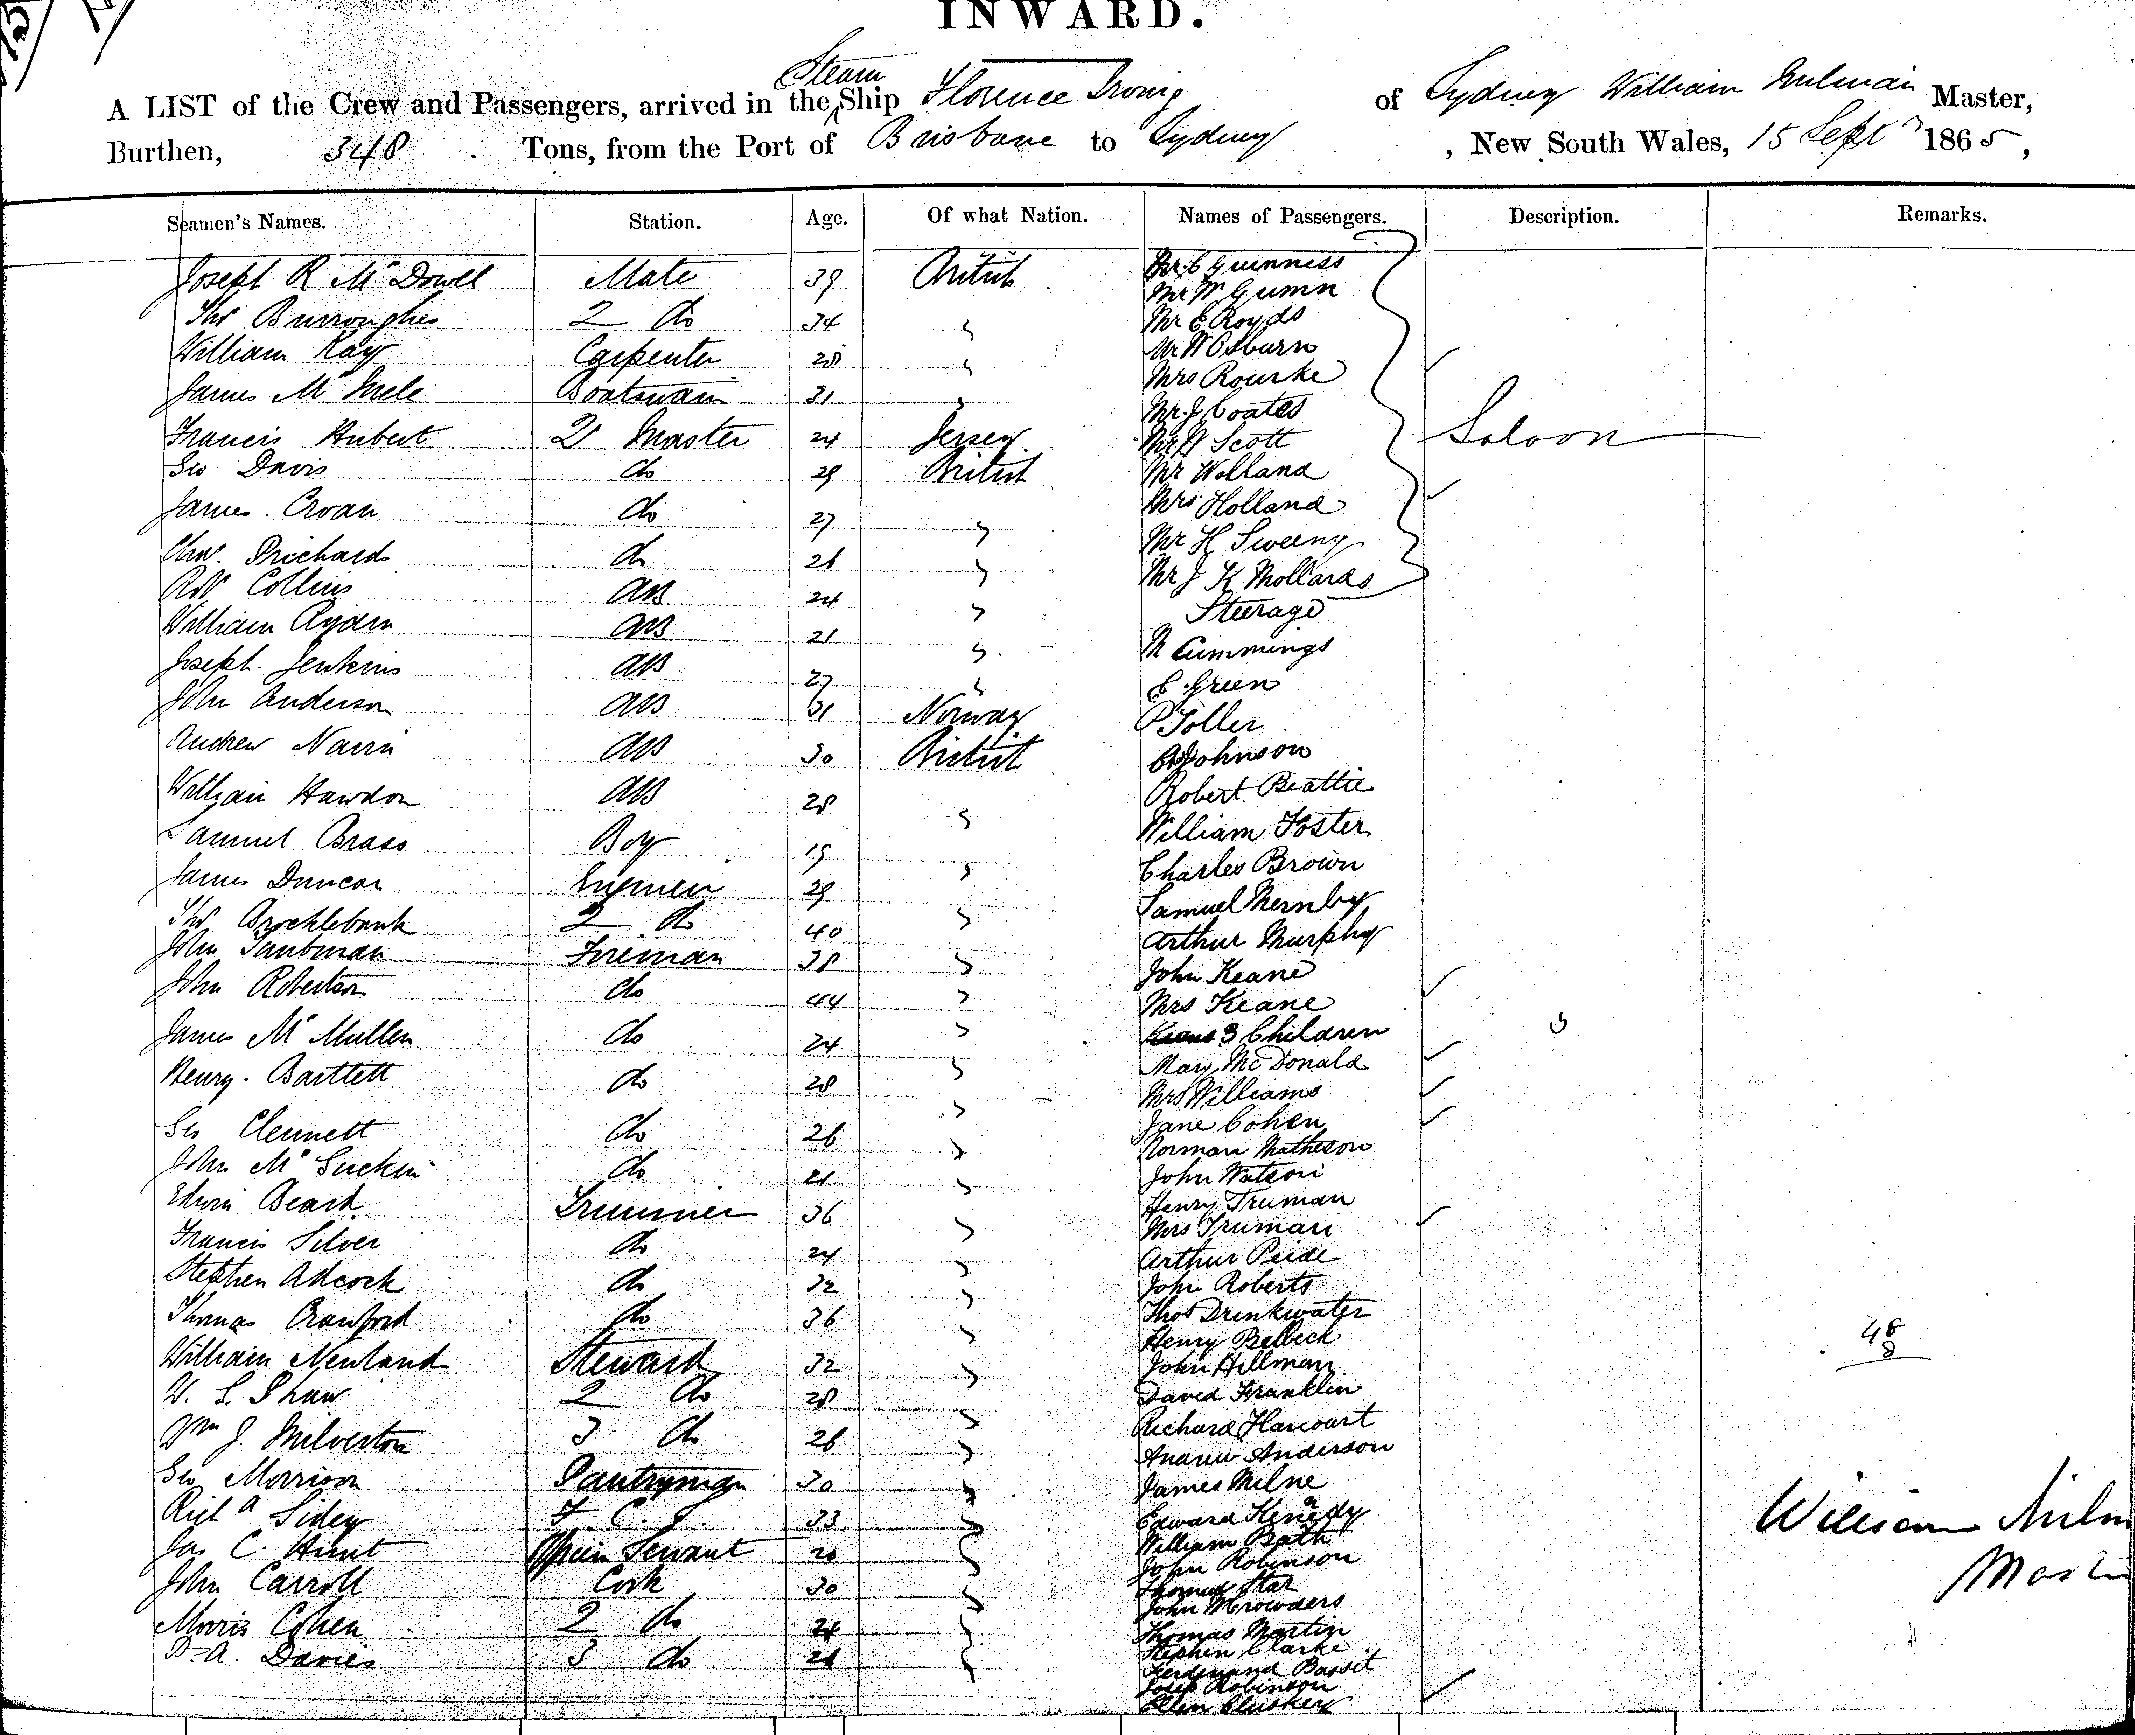 INWARD.
A LIST of the Crew and Passengers, arrived in the Steam Ship Florence Irving of Sydney William Milman Master,
Burthen, 348 Tons, from the Port of Brisbane to Sydney, New South Wales, 15 Sept 1865,
Seamen's Names. Station. Age. Of what Nation. Names of Passengers. Description. Remarks.
Joseph R McDowell Mate 39 British
Thos Burroughes 2 do 34 "
William Kay Carpenter 28 "
James Boatswain 31 "
Francis Hubert 2r Master 24 Jersey
Geo Davis do 29 British
James Croan do 27 "
Chas. Prichard do 26 "
Robt Collins AB 24 "
William Ryden AB 21 "
Joseph Jenkins AB 27 "
John Anderson AB 31 Norway
Andrew Nairn AB 30 British
William Hawdon AB 28 "
Samuel Brass Boy 19 "
James Duncan Engineer 29 "
Thos Brocklebank 2 do 40 "
John Taubman Fireman 38 "
John Robertson do 44 "
James McMullen do 24 "
Henry Bartlett do 28 "
Geo Clennett do 26 "
John do 21 "
Edwin Beard Trimmer 36 "
Francis Silver do 24 "
Stephen Adcock do 32 "
Thomas Crawford do 36 "
William Newland Steward 32 "
W. S. Shaw 2 do 28 "
Wm J. Milverton 3 do 26 "
Geo Morrison Pantryman 30 "
Richd Sidey F. C. S. 33 "
Jas C. Hunt Servant 20 "
John Carroll Cook 30 "
Morris Cohen 2 do 24 "
A. Davies 3 do 21 "
Mr C Guinness
Mr W Gumn
Mr E Royds
Mr W Osburn
Mrs Rourke
Mr J Coates
Mr W Scott
Mr Wolland
Mrs Holland
Mr H Sweeny
Mr J K Mollards
Saloon
Steerage
N Cummings
E Green
P Toller
C Johnson
Robert Beattie
William Foster
Charles Brown
Samuel
Arthur Murphy
John Keane
Mrs Keane
3 Children 3
Mary McDonald
Mrs Williams
Jane Cohen
Norman Matheson
John Watson
Henry Truman
Mrs Truman
Arthur Peide
John Roberts
Thos Drinkwater
Henry Belbeck
John Hillman
David Franklin
Richard Harcourt
Anderson
James Milne
Edward Kenedy
William Bath
John Robinson
Thomas Star
John
Thomas Martin
Stephen Clarke
Ferdinand Basset
Josep Robinson
Ellen Cluskey
48
8
William Milm
Mast